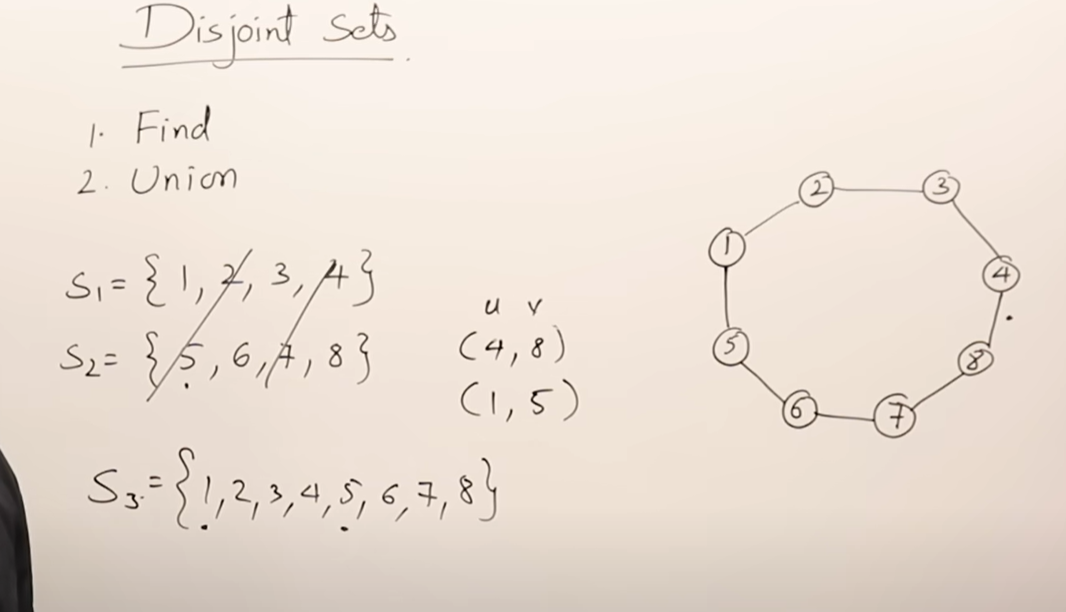 Disjoint Sets.
1. Find
2. Union
S₁ = {1, 2, 3, 4}
S₂ = {5, 6, 7, 8}
u v
(4, 8)
(1, 5)
S₃ = {1, 2, 3, 4, 5, 6, 7, 8}
2
3
1
4
5
8
6
7